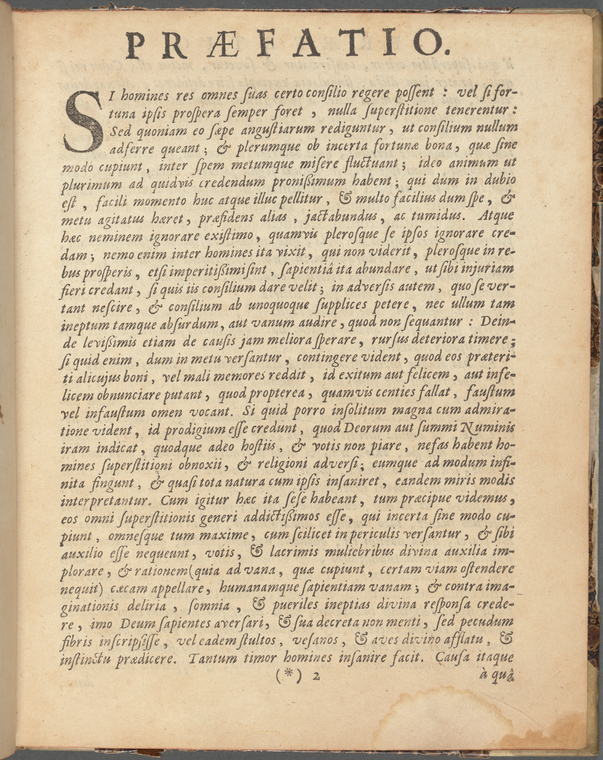 PRÆFATIO.
SI homines res omnes ſuas certo conſilio regere poſſent : vel ſi for-
tuna ipſis proſpera ſemper foret , nulla ſuperſtitione tenerentur :
Sed quoniam eo ſæpe anguſtiarum rediguntur , ut conſilium nullum
adferre queant ; & plerumque ob incerta fortunæ bona , quæ ſine
modo cupiunt , inter ſpem metumque miſere fluctuant ; ideo animum ut
plurimum ad quidvis credendum proniſſimum habent ; qui dum in dubio
eſt , facili momento huc atque illuc pellitur , & multo facilius dum ſpe , &
metu agitatus hæret , præfidens alias , jactabundus , ac tumidus. Atque
hæc neminem ignorare exiſtimo , quamvis plerosque ſe ipſos ignorare cre-
dam ; nemo enim inter homines ita vixit , qui non viderit , plerosque in re-
bus proſperis , etſi imperitiſſimi ſint , ſapientiâ ita abundare , ut ſibi injuriam
fieri credant , ſi quis iis conſilium dare velit ; in adverſis autem , quo ſe ver-
tant neſcire , & conſilium ab unoquoque ſupplices petere , nec ullum tam
ineptum tamque abſurdum , aut vanum audire , quod non ſequantur : Dein-
de leviſſimis etiam de cauſis jam meliora ſperare , rurſus deteriora timere ;
ſi quid enim , dum in metu verſantur , contingere vident , quod eos præteri-
ti alicujus boni , vel mali memores reddit , id exitum aut felicem , aut infe-
licem obnunciare putant , quod propterea , quamvis centies fallat , fauſtum
vel infauſtum omen vocant. Si quid porro inſolitum magna cum admira-
tione vident , id prodigium eſſe credunt , quod Deorum aut ſummi Numinis
iram indicat , quodque adeo hoſtiis , & votis non piare , nefas habent ho-
mines ſuperſtitioni obnoxii , & religioni adverſi ; eumque ad modum infi-
nita fingunt , & quaſi tota natura cum ipſis inſaniret , eandem miris modis
interpretantur. Cum igitur hæc ita ſeſe habeant , tum præcipue videmus ,
eos omni ſuperſtitionis generi addictiſſimos eſſe , qui incerta ſine modo cu-
piunt , omnesque tum maxime , cum ſcilicet in periculis verſantur , & ſibi
auxilio eſſe nequeunt , votis , & lacrimis muliebribus divina auxilia im-
plorare , & rationem (quia ad vana , quæ cupiunt , certam viam oſtendere
nequit) cæcam appellare , humanamque ſapientiam vanam ; & contra ima-
ginationis deliria , ſomnia , & pueriles ineptias divina reſponſa crede-
re , imo Deum ſapientes averſari , & ſua decreta non menti , ſed pecudum
fibris inſcripſiſſe , vel eadem ſtultos , veſanos , & aves divino afflatu , &
inſtinctu prædicere. Tantum timor homines inſanire facit. Cauſa itaque
(*) 2 à quâ